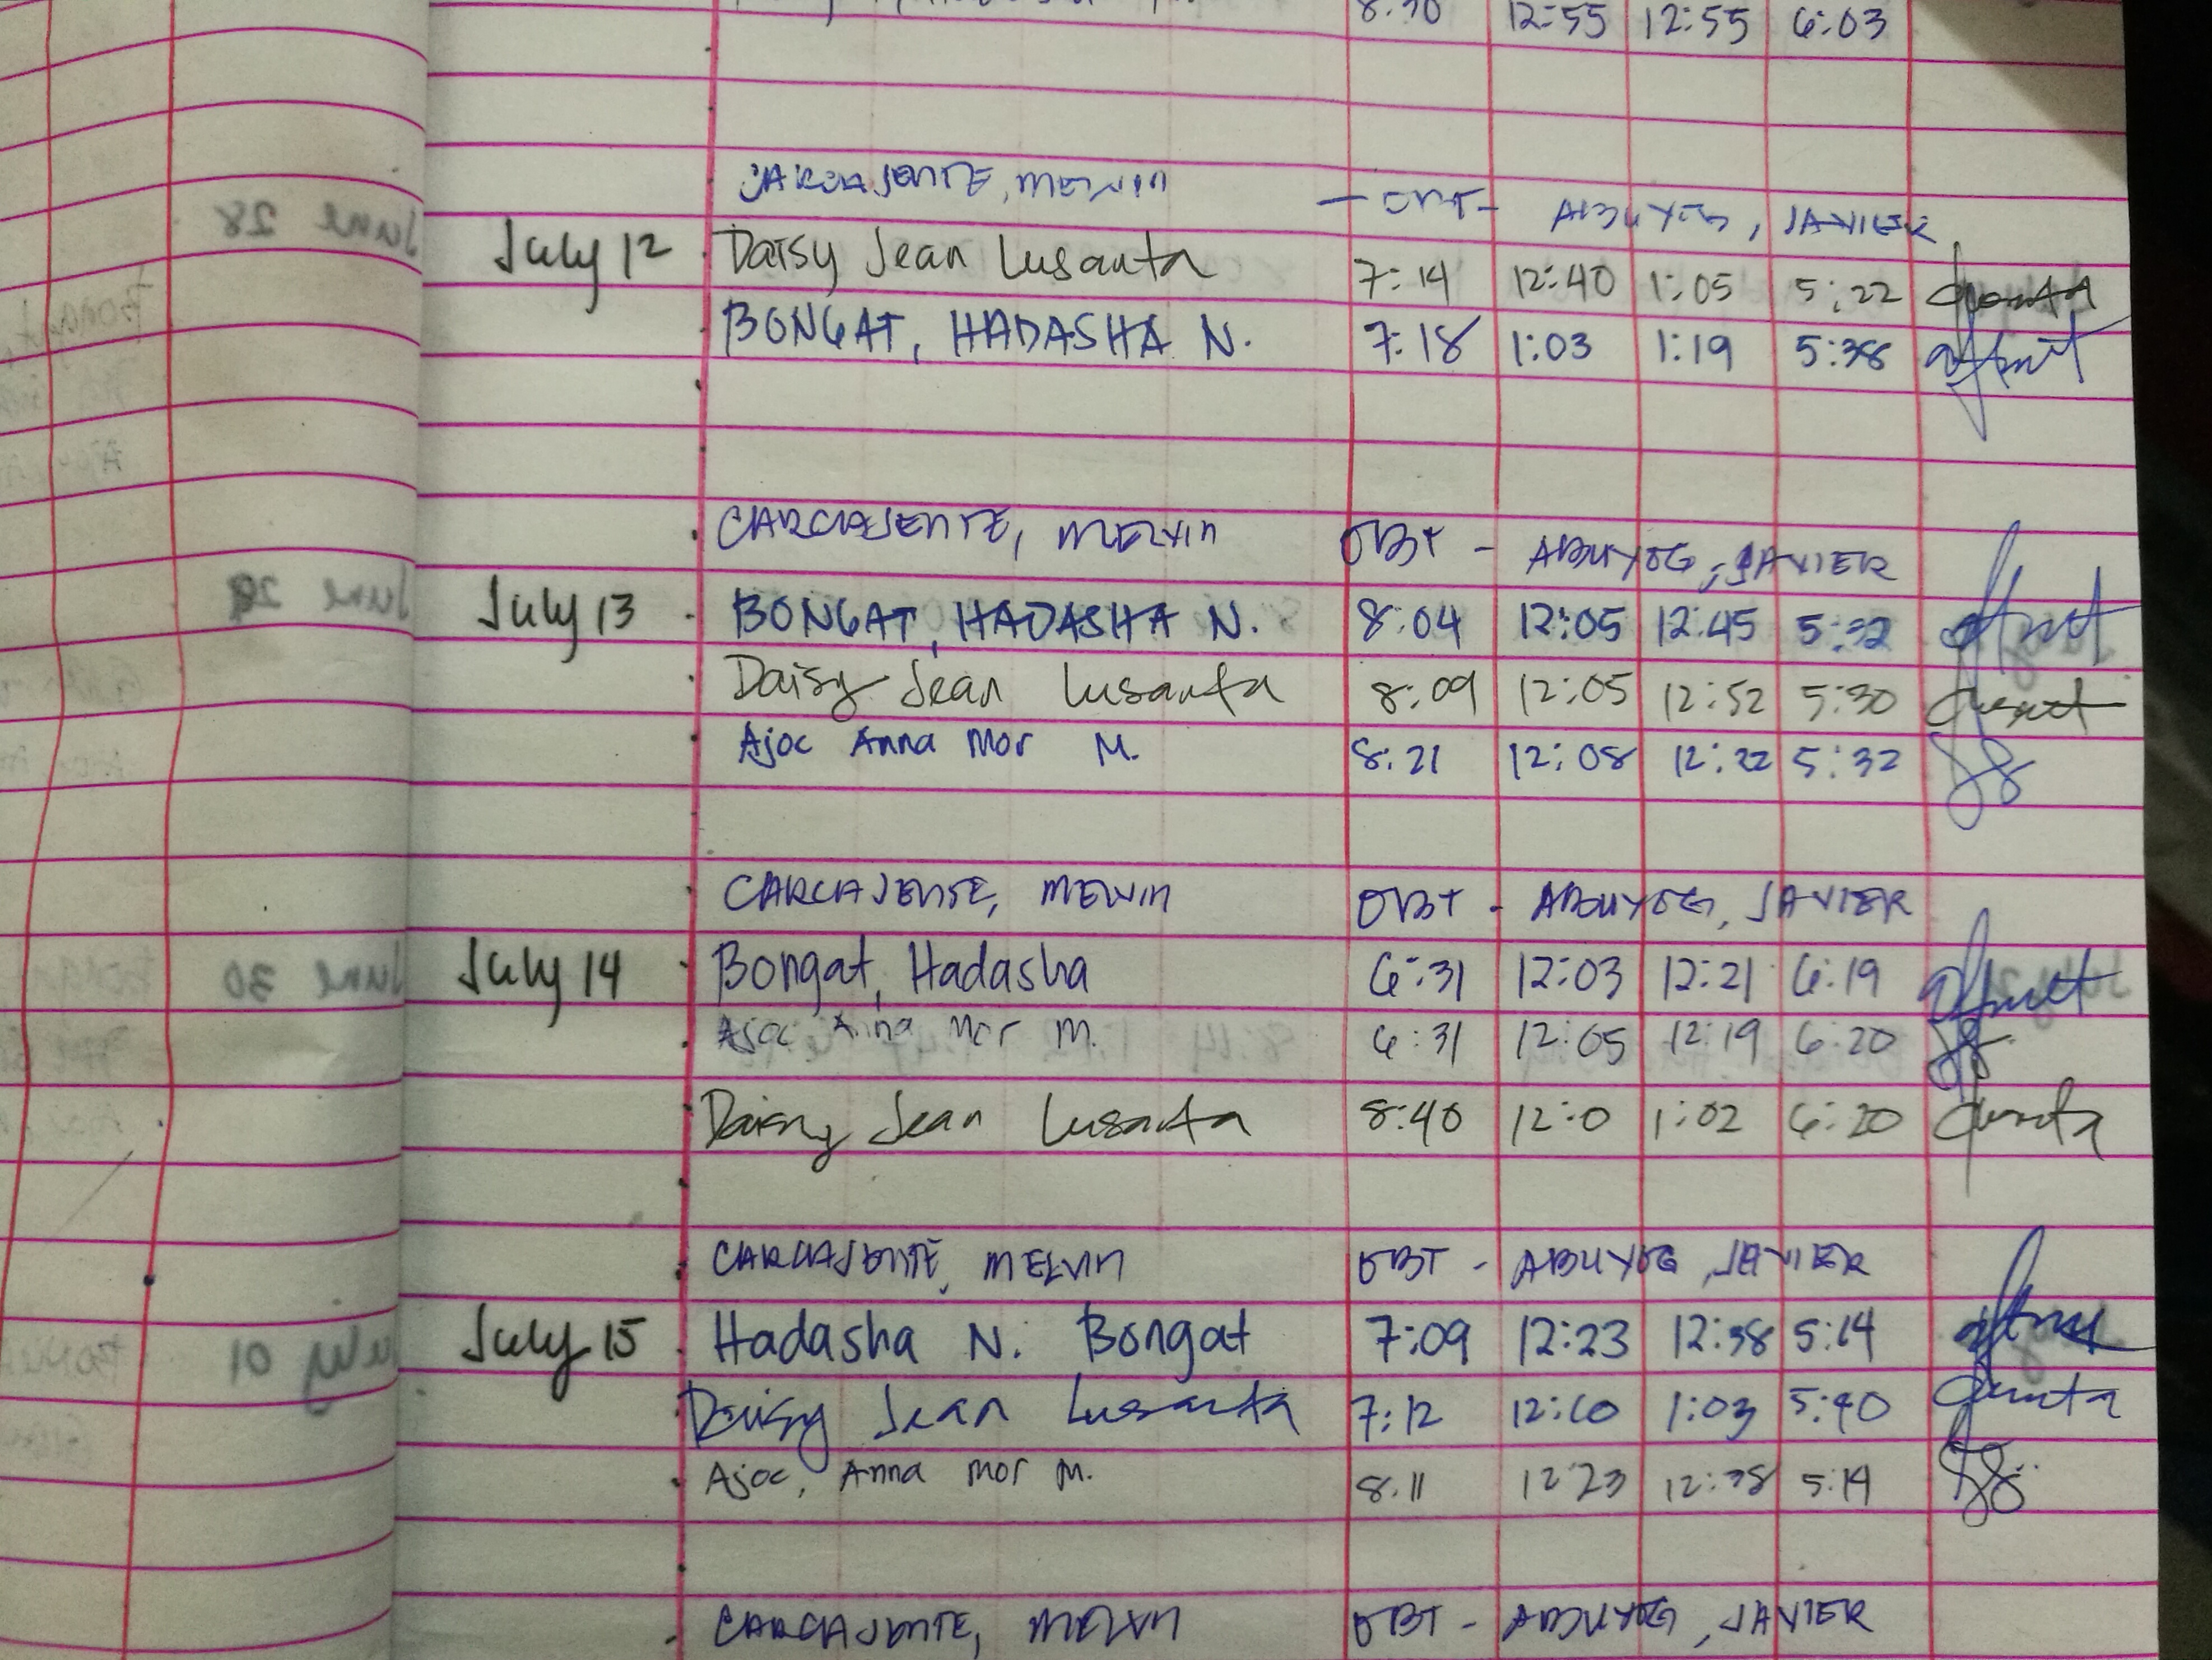 8:30 12:55 12:55 6:03
CARCIASENTE, MELVIN - OBT - ABUYOG, JAVIER
July 12 Daisy Jean Lusanta 7:14 12:40 1:05 5:22
BONGAT, HADASHA N. 7:18 1:03 1:19 5:38
CARCIASENTE, MELVIN OBT - ABUYOG, JAVIER
July 13 BONGAT, HADASHA N. 8:04 12:05 12:45 5:32
Daisy Jean Lusanta 8:09 12:05 12:52 5:30
Ajoc Anna Mor M. 8:21 12:08 12:22 5:32
CARCIASENTE, MELVIN OBT - ABUYOG, JAVIER
July 14 Bongat, Hadasha 6:31 12:03 12:21 6:19
Ajoc Anna Mor M. 6:31 12:05 12:19 6:20
Daisy Jean Lusanta 8:40 12:0 1:02 6:20
CARCIASENTE, MELVIN OBT - ABUYOG, JAVIER
July 15 Hadasha N. Bongat 7:09 12:23 12:38 5:14
Daisy Jean Lusanta 7:12 1:03 5:40
Ajoc, Anna Mor M. 8:11 12 23 12:38 5:14
CARCIASENTE, MELVIN OBT - ABUYOG, JAVIER